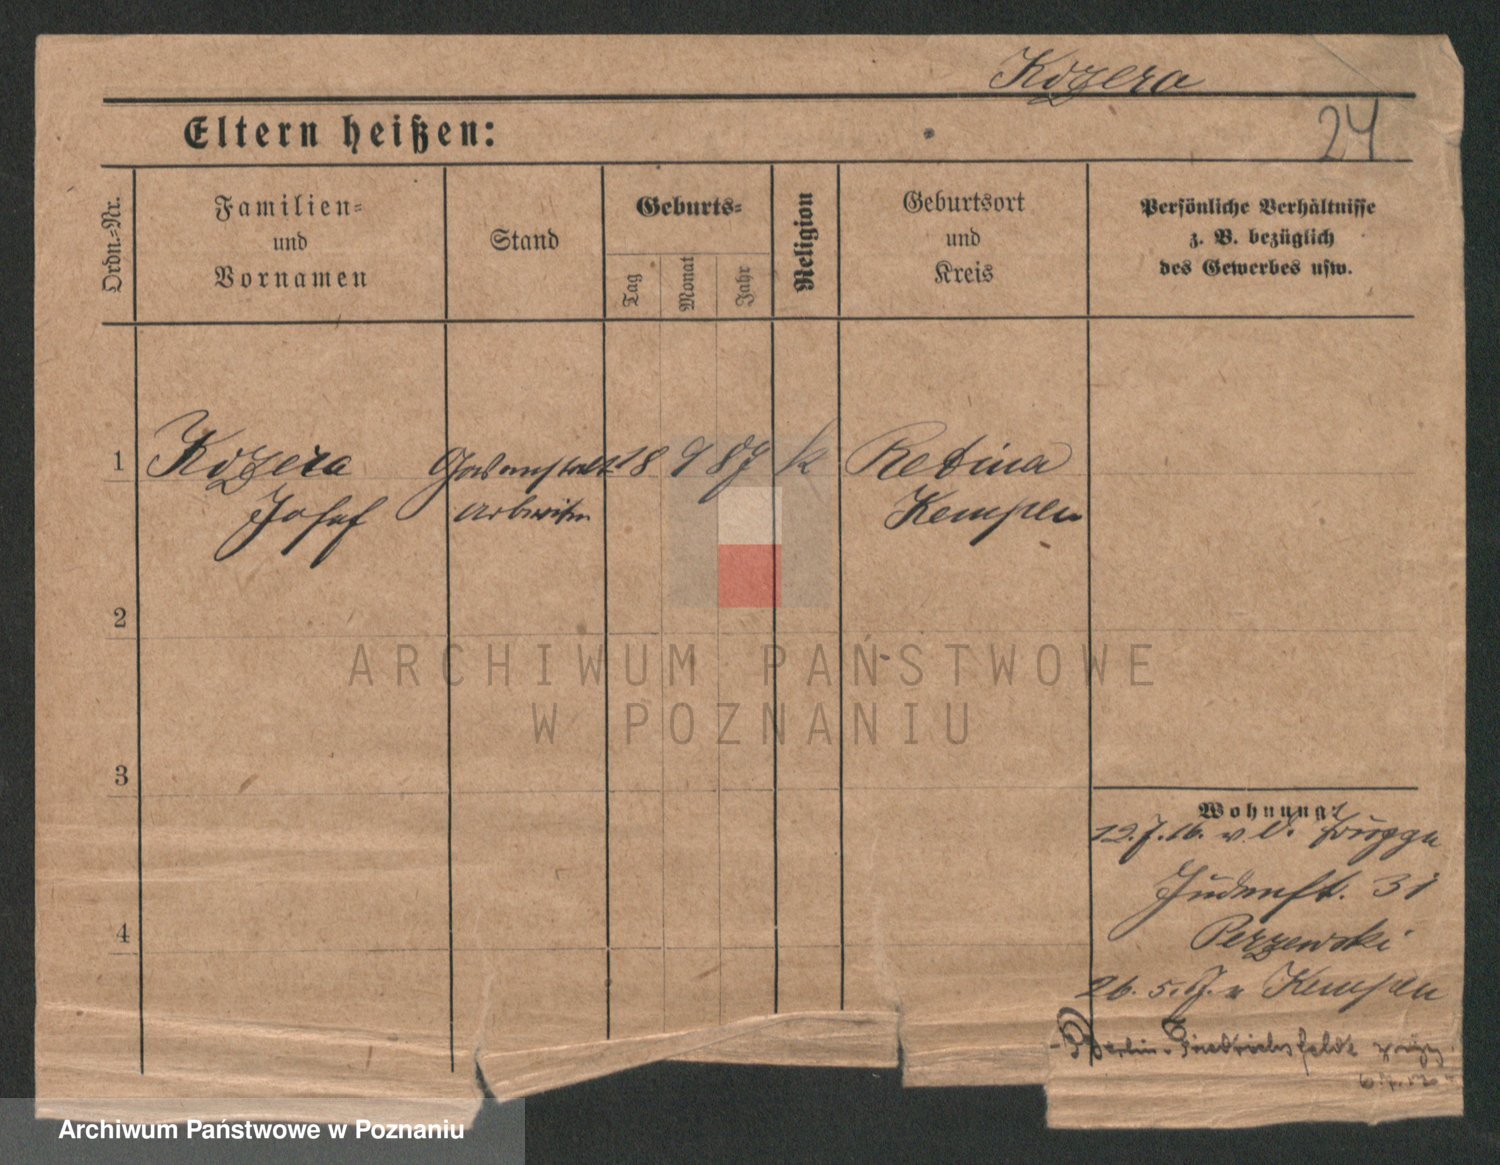 Kozera
24
Eltern heißen:
Ordn.-Nr.
Familien-
und
Vornamen
Stand
Geburts-
Tag
Monat
Jahr
Religion
Geburtsort
und
Kreis
Persönliche Verhältnisse
z. B. bezüglich
des Gewerbes usw.
1
Kozera
Josef
Gasanstalt
arbeiter
18
9
87
k
Retina
Kempen
2
ARCHIWUM PAŃSTWOWE
W POZNANIU
3
Wohnung:
12.7.16. v.
Judenst. 31
Perzewski
26. 5. 17. v Kempen
Berlin-Friedrichsfelde
4
Archiwum Państwowe w Poznaniu